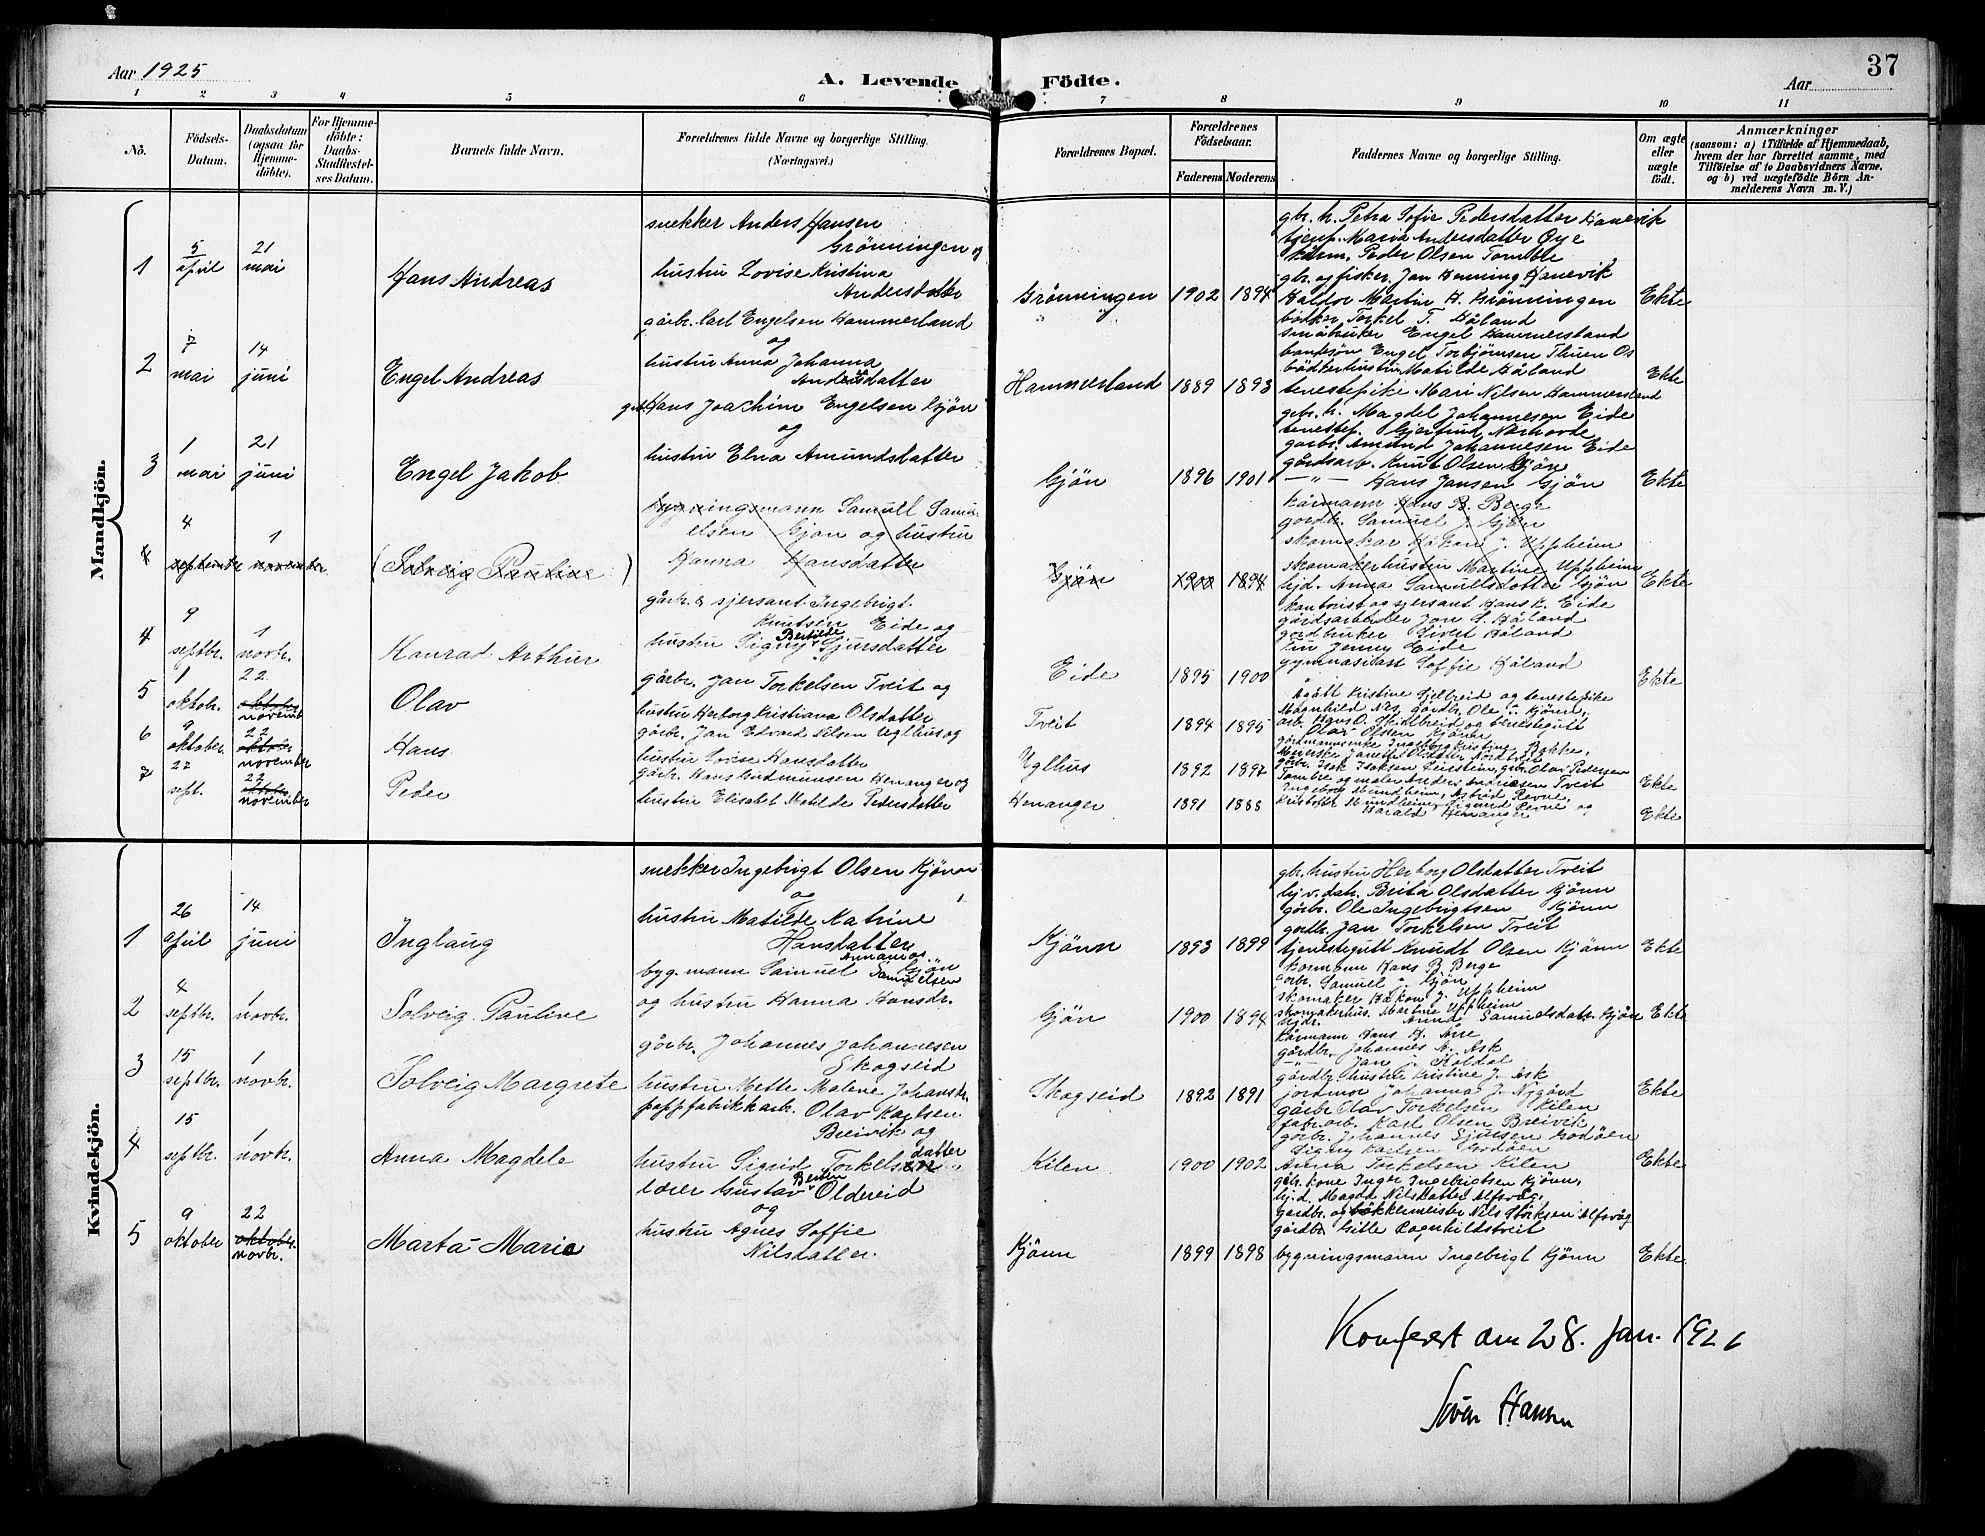 Aar 1925
A. Levende Födte.
Aar
37
1 2 3 4 5 6 7 8 9 10 11
No.
Födsels-Datum.
Daabsdatum (ogsaa for Hjemmedöbte).
For Hjemmedöbte: Daabs-Stadfestelses Datum.
Barnets fulde Navn.
Forældrenes fulde Navne og borgerlige Stilling.
(Næringsvei.)
Forældrenes Bopæl.
Forældrenes Födselsaar.
Faderens Moderens
Faddernes Navne og borgerlige Stilling.
Om ægte eller uægte födt.
Anmærkninger
(saasom: a) i Tilfælde af Hjemmedaab, hvem der har forrettet samme, med Tilföielse af to Daabsvidners Navne, og b) ved uægtefödte Börn Anmelderens Navn m. V.)
Mandkjön.
1
5 april
21 mai
Hans Andreas
snekker Anders Hansen
Grönningen og
hustru Lovise Kristina
Andersdatter
Grönningen
1902 1894
gbr. h. Petra Sofie Pedersdatter Hanevik
tjenp. Maria Andersdatter Øye
kårm. Peder Olsen Tombre
gbr. og fisker Jan Henning Hanevik
Haldor Martin H. Grönningen
Ekte
2
7 mai
14 juni
Engel Andreas
gårbr. Karl Engelsen Hammerland
og
hustru Anna Johanna
Andersdatter
Hammerland
1889 1893
bødker Torkel T. Håland
småbruker Engel Hammersland
Engel Torbjørnsen Thuen Os
bødkerhustru Matilde Håland
tenestepike Mari Nilsen Hammersland
Ekte
3
1 mai
21 juni
Engel Jakob
gbr. Hans Joachim Engelsen Gjøn
og
hustru Elna Amundsdatter
Gjøn
1896 1901
gbr. h. Magdel Johannesen Eide
tenestep. Gjertrud Nærhovde
gårbr. Amund Johannesen Eide
gårdsarb. Knut Olsen Gjøn
—"— Hans Jansen Gjøn
Ekte
4
4 september
1 november
(Solveig Pauline)
bygningsmann Samuel Samu-
elsen Gjøn og hustru
Hanna Hansdatter
Gjøn
1900 1894
kårmann Hans B. Berge
gordbr. Samuel J. Gjøn
skomakar Håkon J. Uppheim
skomakerhustru Martine Uppheim
hjd. Anna Samuelsdatter Gjøn
Ekte
4
9 septbr.
1 novbr.
Konrad Arthur
gårbr. & sjersant Ingebrigt
Knutsen Eide og
hustru Signy Bertilde Sjursdatter
Eide
1895 1900
kontorist og sjersant Hans K. Eide
gårdsarbeider Jon S. Håland
gordbruker Sivert Håland
fru Jenny Eide
gymnasiast Soffie Håland
Ekte
5
1 oktobr.
22 oktober novemb
Olav
gårbr. Jan Torkelsen Tveit og
hustru Herborg Kristiana Olsdatter
Tveit
1894 1895
Agått Kristine Hjelbreid og tenestepike
Magnhild Nes, gårdbr. Ole J. Kjønn,
arb. Hans O. Hidlbreid og tenestegutt
Olav Olsen Kjønn
6
9 oktober
22 oktober november
Hans
gårbr. Jan Edvard Nilsen Uglhus og
hustru Lovise Hansdatter
Uglhus
1892 1892
gårdmannsenke Ingeborg Kristine Bakke,
gårbr. Isak Isaksen Leirstein, gbr. Olav Pedersen
Tombre og maler Anders Andreasen Tveit
Ekte
7
22 sept.
22 oktobr. november
Peder
gårbr. Hans Gudmunsen Henanger og
hustru Elisabet Matilde Pedersdatter
Henanger
1891 1888
Ingeborg Mundheim, Astrid Revne,
Kristoffer Mundheim, Sigurd Revne og
Harald Henanger
Ekte
Kvindekjön.
1
26 april
14 juni
Inglaug
snekker Ingebrigt Olsen Kjønn
og
hustru Matilde Katrine
Hansdatter
Kjönn
1893 1899
gbr. hustru Herborg Olsdatter Tveit
hj.v. datr. Brita Olsdatter Kjönn
gårbr. Ole Ingebrigtsen Kjönn
gordbr. Jan Torkelsen Tveit
tjenestegutt Knudt Olsen Kjønn
Ekte
2
4 septbr.
1 novbr.
Solveig Pauline
byg. mann Samuel Samuelsen Gjøn
og hustru Hanna Hansdr.
Gjøn
1900 1894
kormann Hans B. Berge
gorbr. Samuel J. Gjøn
skomaker Håkon J. Uppheim
skomakerhus. Martine Uppheim
hjdr. Anna Samuelsdatr. Gjøn
Ekte
3
15 septbr.
1 novbr.
Solveig Margrete
gårbr. Johannes Johannesen
Skogseid
hustru Mette Malene Johansdr.
Skogseid
1892 1891
kårmann Hans H. Åsre
gårdbr. Johannes A. Ask
—"— Jan J. Koldal
gårdbr. hustru Kristine J. Ask
jordmor Johanna J. Nygård
Ekte
4
15 septbr.
1 novbr.
Anna Magdele
pappfabrikkarb. Olav Karlsen
Breivik og
hustru Sigrid Torkelsdatter
Kilen
1900 1902
gårbr. Olav Torkelsen Kilen
fabr. arb. Karl Olsen Breivik,
gorbr. Johannes Sjursen Godøen
Signy Karlsen Godøen
Anna Torkelsen Kilen
Ekte
5
9 oktober
22 oktobr. novbr.
Marta Marie
lærer Gustav Berten Oldereid
og
hustru Agnes Soffie
Nilsdatter.
Kjønn
1899 1898
gbr. kone Inger Ingebrigtsen Kjönn,
hj.d. Magda Nilsdatter Alfsvåg,
gardbr. og løkkemeister Nils Eriksen Alfsvåg
gårdbr. Gitle Ragnhildstveit
bygningsmann Ingebrigt Kjönn
Ekte
Konferert den 28. jan. 1926
Sven Hansen